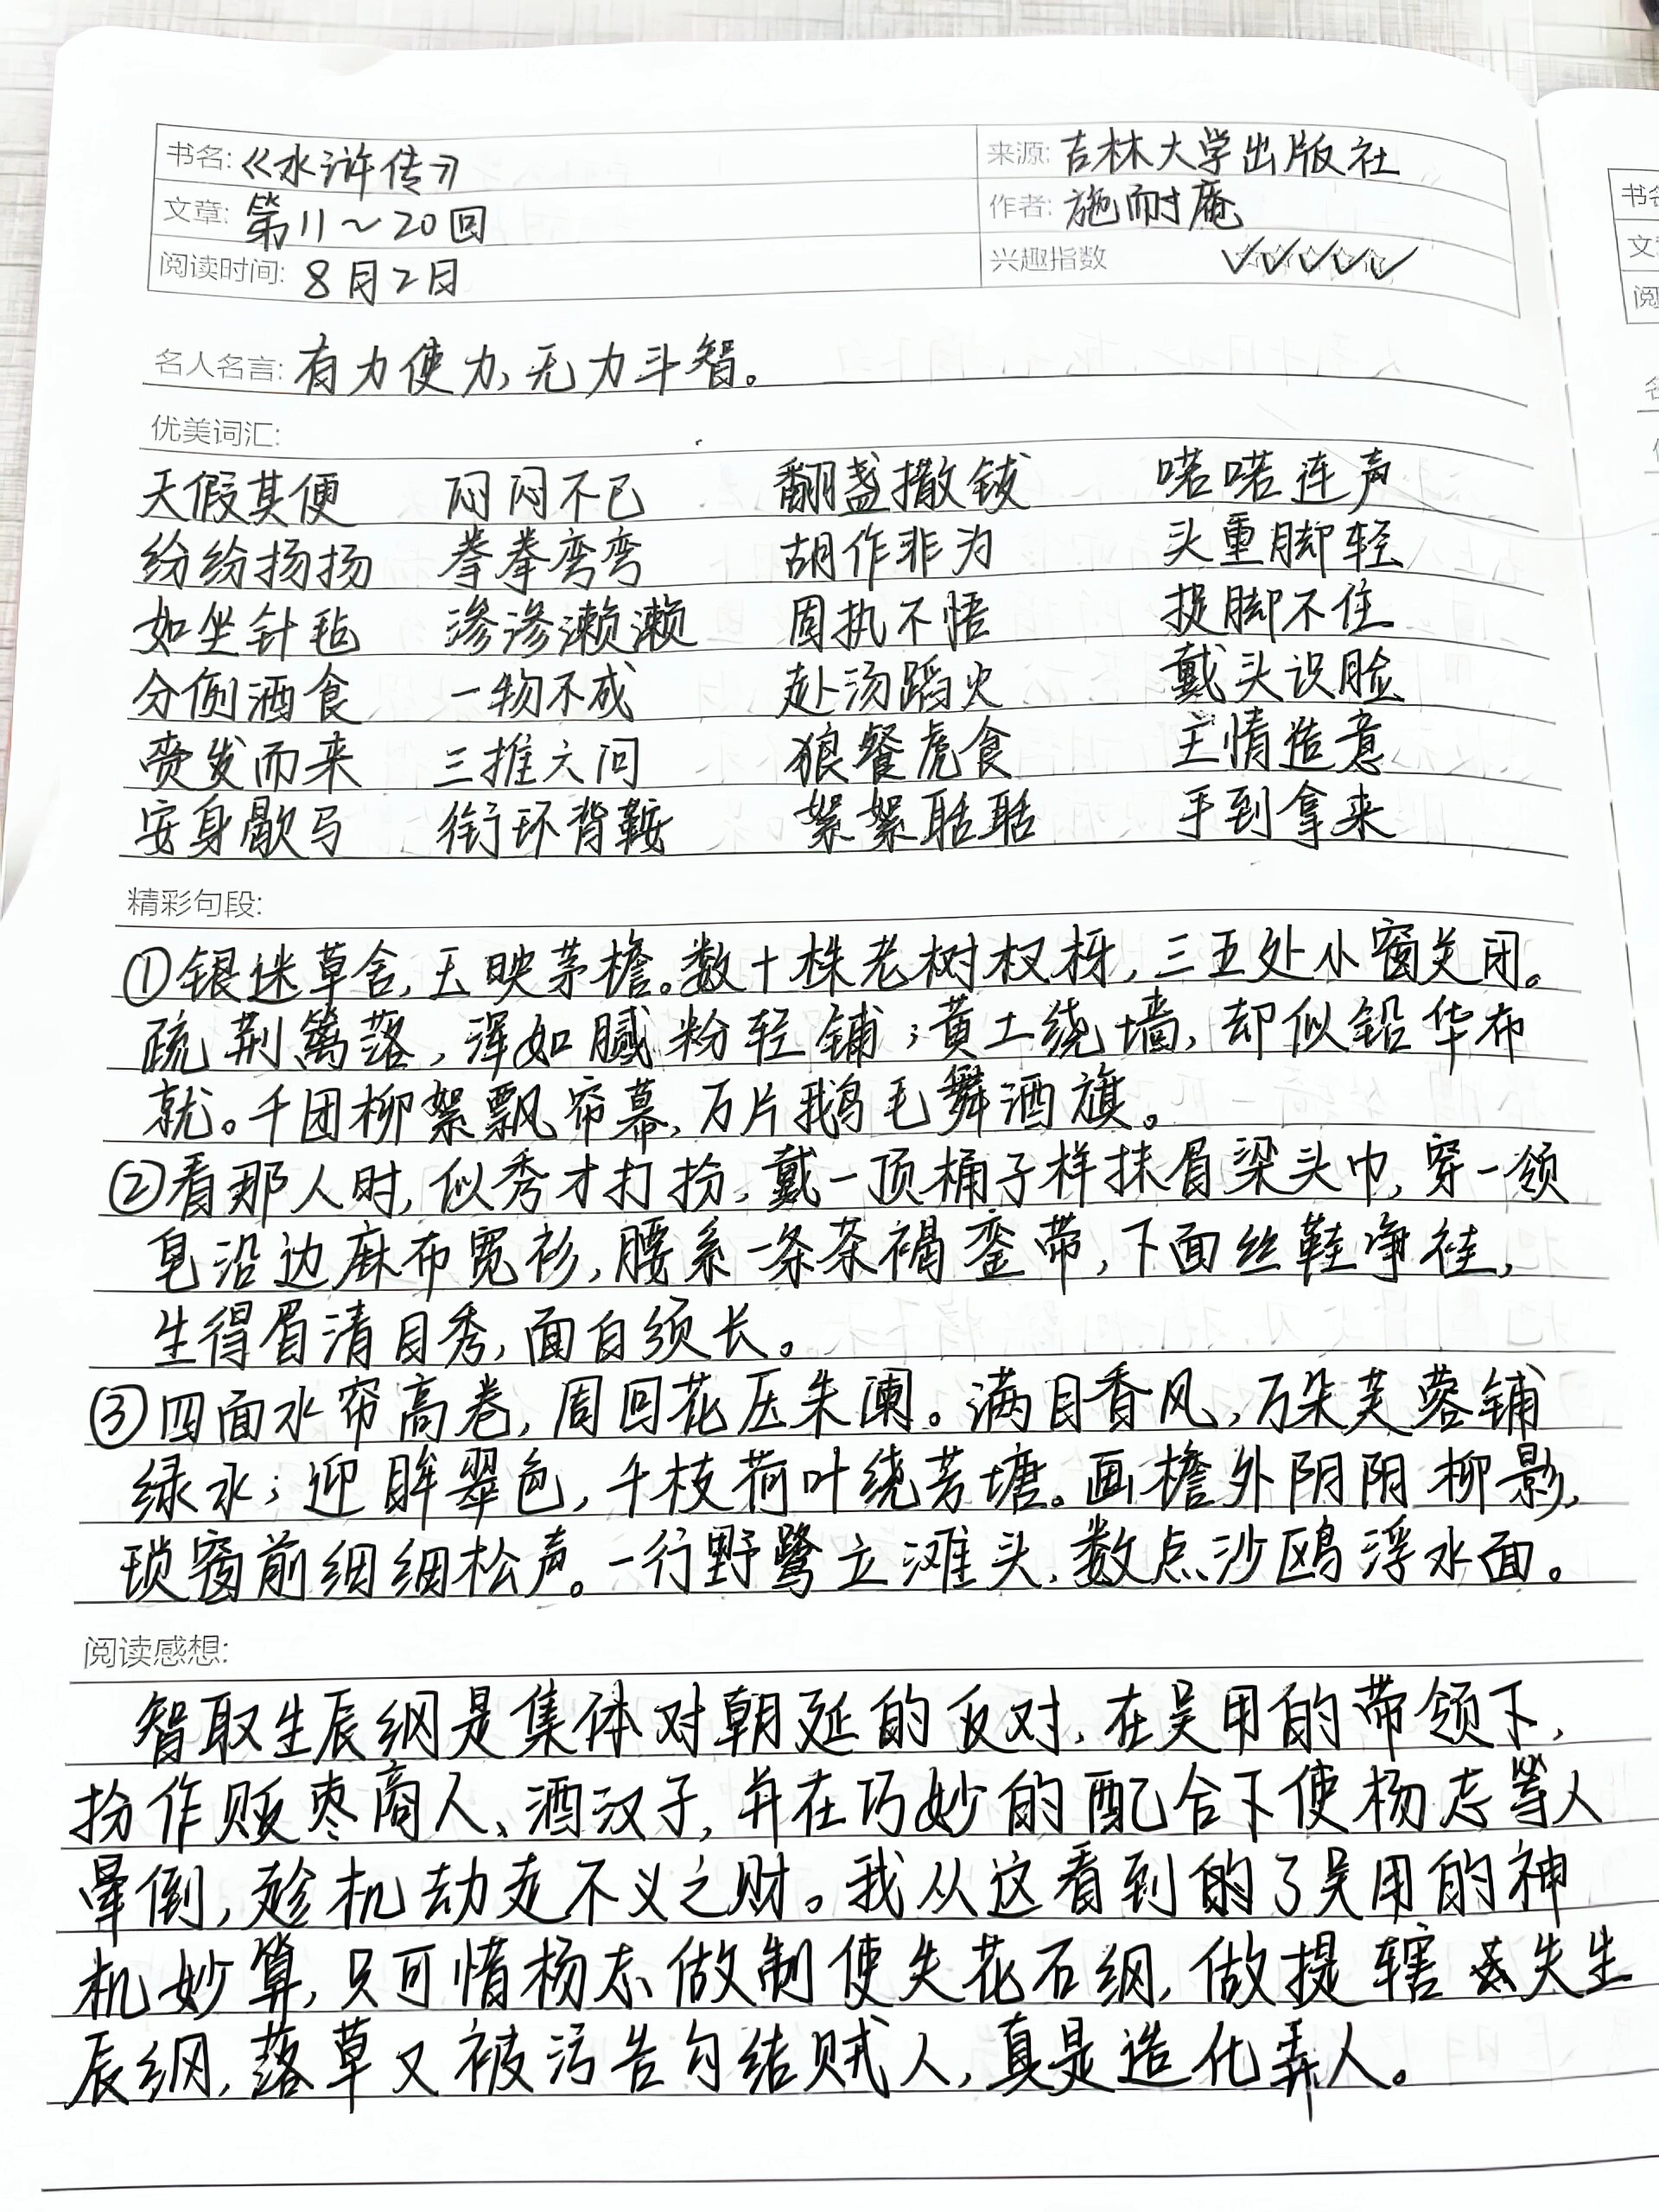 书名:《水浒传》 来源:吉林大学出版社
文章:第11～20回 作者:施耐庵
阅读时间:8月2日 兴趣指数 ✓✓✓✓✓
名人名言:有力使力,无力斗智。
优美词汇:
天假其便 闷闷不已 翻盏撒钹 喏喏连声
纷纷扬扬 拳拳弯弯 胡作非为 头重脚轻
如坐针毡 渗渗濑濑 周执不悟 捉脚不住
分侧酒食 一物不成 赴汤蹈火 戴头识脸
赍发而来 三推六问 狼餐虎食 主情造意
安身歇马 衔环背鞍 絮絮聒聒 手到拿来
精彩句段:
①银迷草舍,玉映茅檐。数十株老树杈枒,三五处小窗关闭。
疏荆篱落,浑如腻粉轻铺;黄土绕墙,却似铅华布
就。千团柳絮飘帘幕,万片鹅毛舞酒旗。
②看那人时,似秀才打扮,戴一顶桶子样抹眉梁头巾,穿一领
皂沿边麻布宽衫,腰系一条茶褐銮带,下面丝鞋净袜,
生得眉清目秀,面白须长。
③四面水帘高卷,周回花压朱阑。满目香风,万朵芙蓉铺
绿水;迎眸翠色,千枝荷叶绕芳塘。画檐外阴阴柳影,
琐窗前细细松声。一行野鹭立滩头,数点沙鸥浮水面。
阅读感想:
智取生辰纲是集体对朝廷的反对,在吴用的带领下,
扮作贩枣商人、酒汉子,并在巧妙的配合下使杨志等人
晕倒,趁机劫走不义之财。我从这看到的了吴用的神
机妙算,只可惜杨志做制使失花石纲,做提辖失生
辰纲,落草又被污告勾结贼人,真是造化弄人。
书名
文章
阅